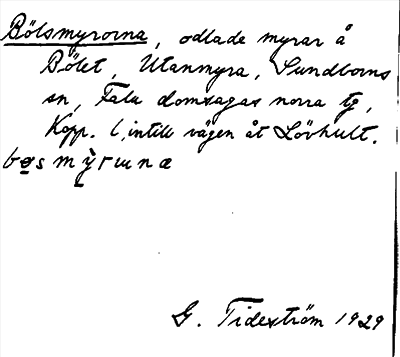 Bölsmyrorna, odlade myrar å
Bölet, Utanmyra, Sundborns
sn, Falu domsagas norra tg,
Kopp. l, intill vägen åt Lövhult.
G. Tideström 1929